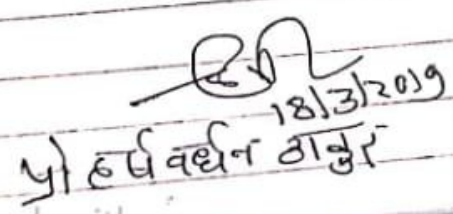 18/3/2019
प्रो हर्ष वर्धन ठाकुर